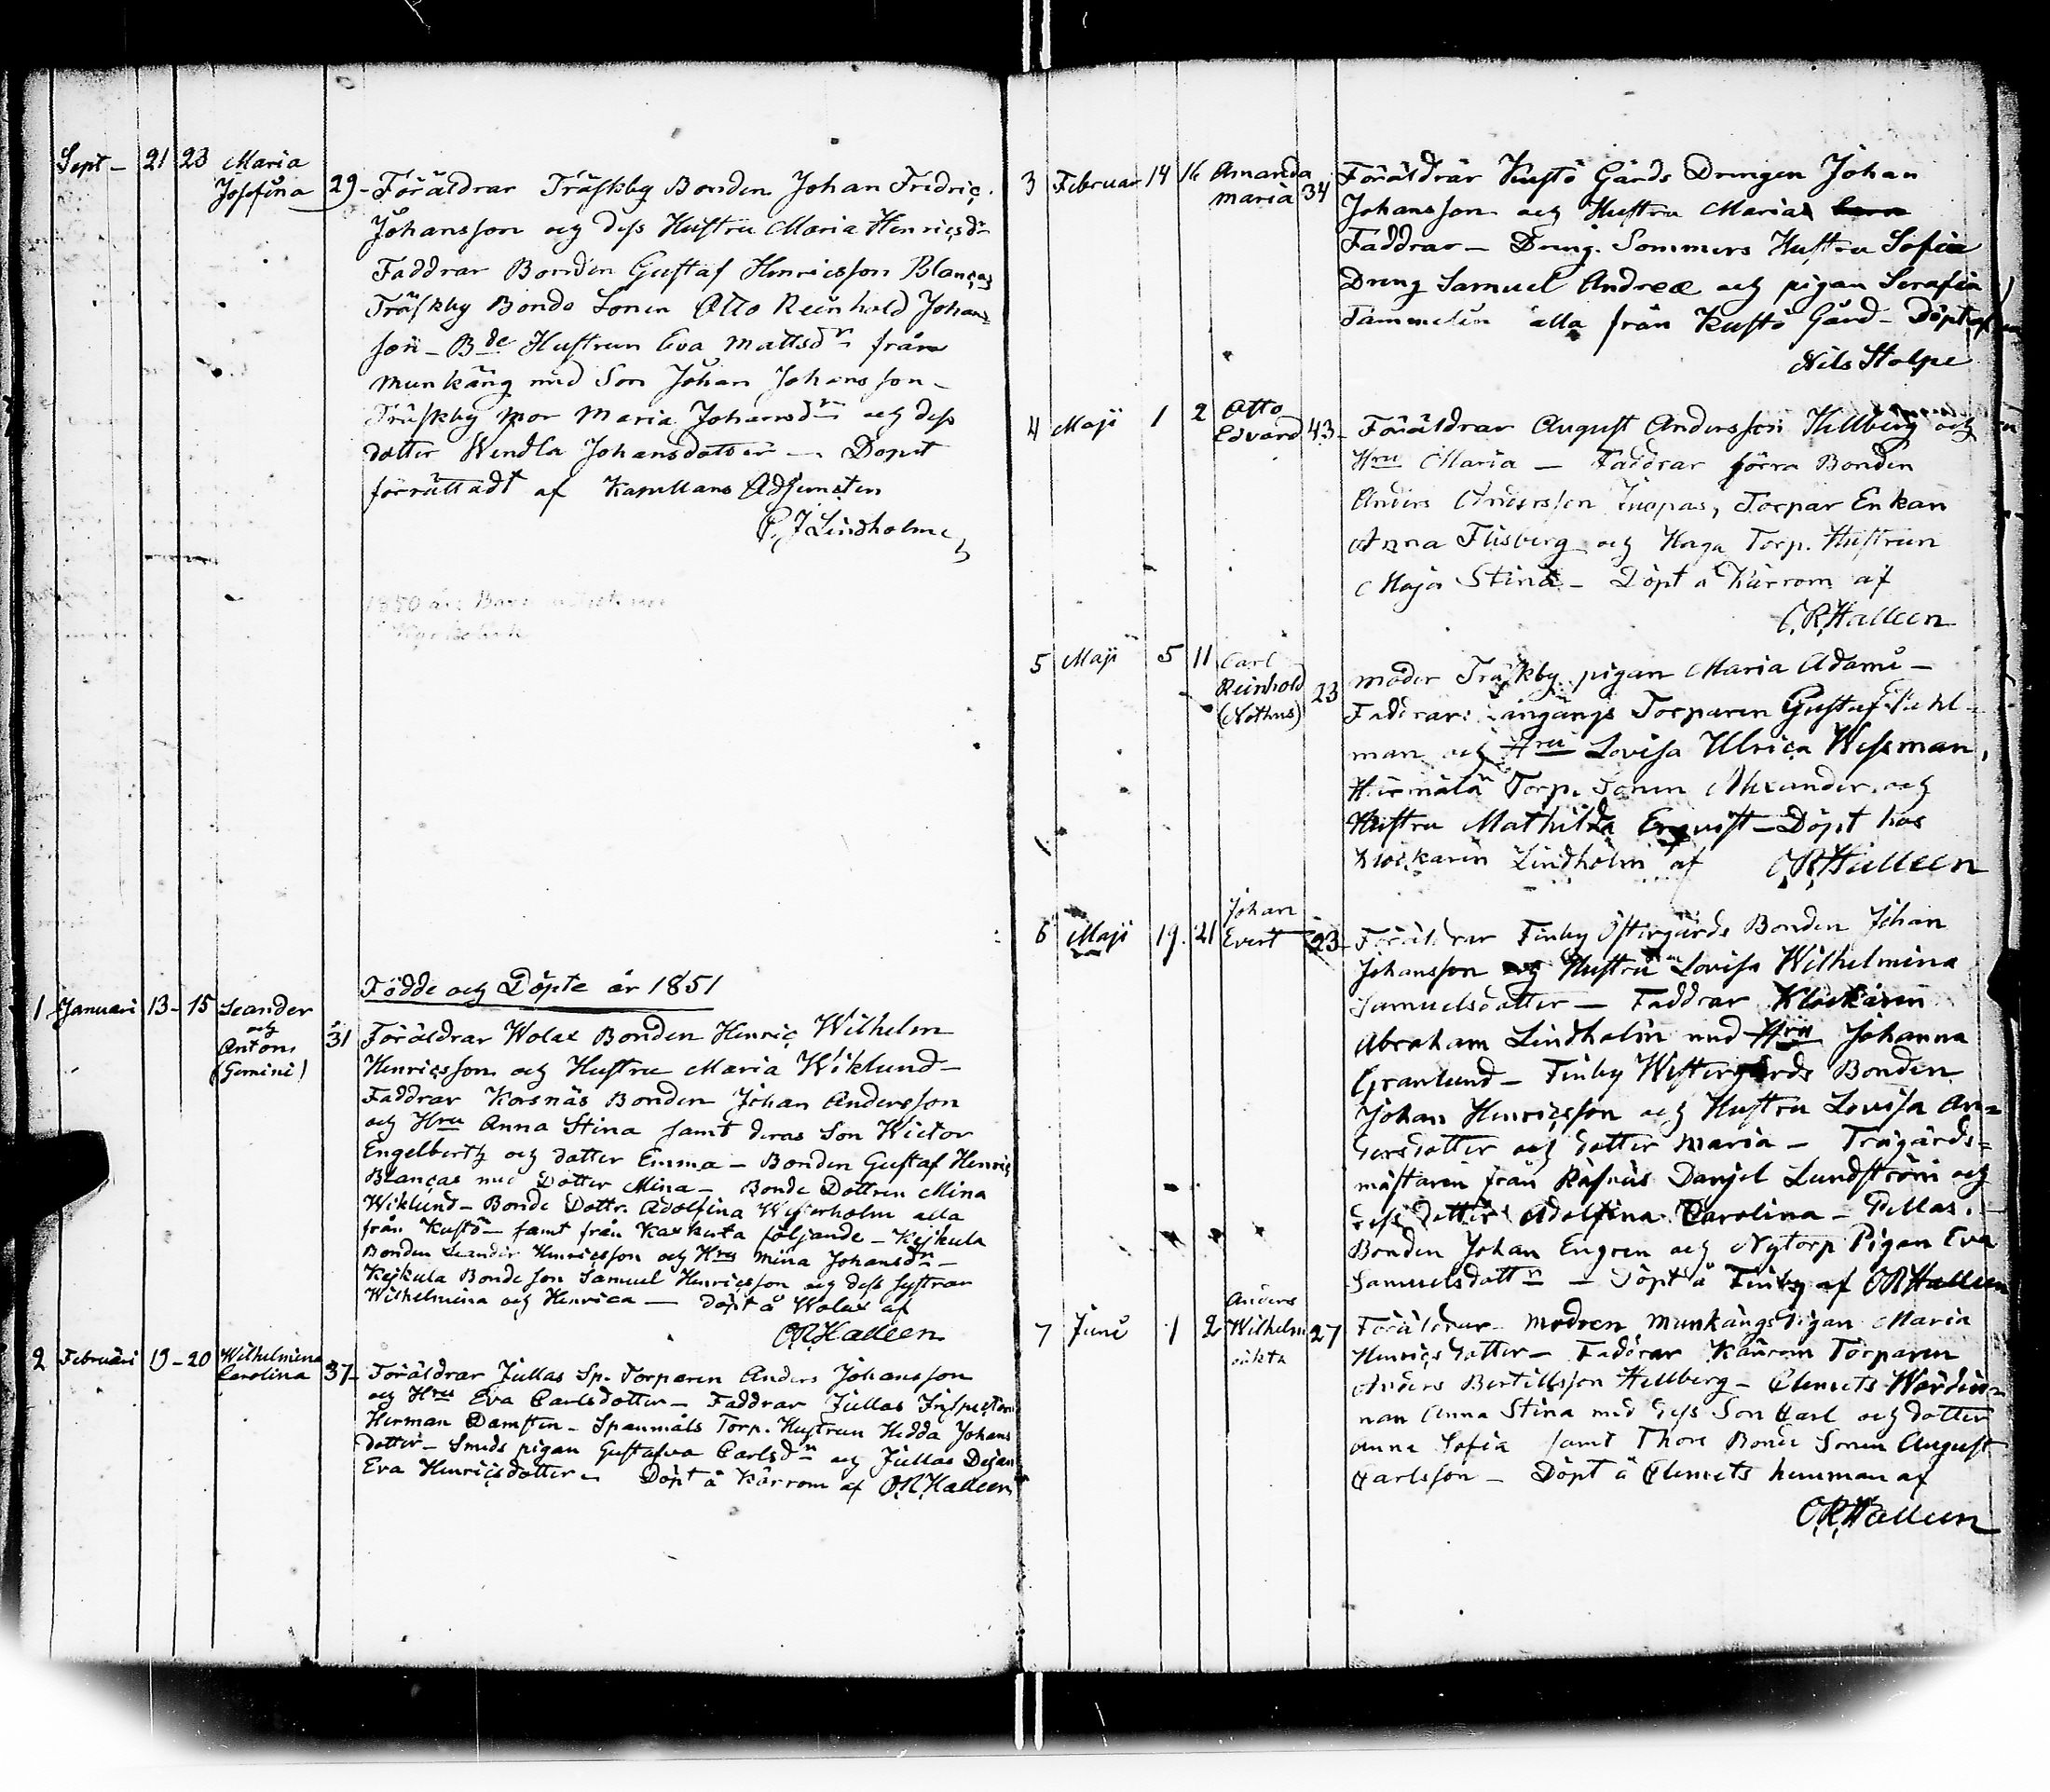 Sept - 21 23 Maria
Josefina 29 - Föräldrar Träskby Bonden Johan Fredric
Johansson och dess Hustru Maria Henricsdr
Faddrar Bonden Gustaf Henricsson Blancas
Träskby Bonde Sonen Otto Reinhold Johans
son - Bde Hustrun Eva Mattsdr från
Munkäng med Son Johan Johansson -
Träskby Mor Maria Johansdr och dess
dotter Wendla Johansdotter - Dopet
förrättadt af Kapellans Adjuncten
P. J Lindholm
1850
Födde och Döpte år 1851
1 Januari 13 - 15 Leander
och
Anton
(Gemini) 31 Föräldrar Wolax Bonden Henric Wilhelm
Henricsson och Hustru Maria Wiklund -
Faddrar Korsnäs Bonden Johan Andersson
och Hru Anna Stina samt deras Son Wictor
Engelbert och dotter Emma - Bonden Gustaf Henric
Blancas med Dotter Mina - Bonde Dottren Mina
Wiklund - Bonde Dottr. Adolfina Westerholm alla
från Kustö - samt från Kaxkerta följande - Kejkula
Bonden Leander Henricsson och Hru Mina Johansdr -
Kejkula Bonde Son Samuel Henricsson och dess systrar
Wilhelmina och Henrica - Döpt å Wolax af
O.R. Halleen
2 Februari 19 - 20 Wilhelmina
Carolina 37 - Föräldrar Jullas Sp. Torparen Anders Johansson
och Hru Eva Carlsdotter - Faddrar Jullas Inspectoren
Herman Damsten - Spanmåls Torp. Hustrun Hedda Johans
dotter - Smeds pigan Gustafva Carlsdr och Jullas Dejan
Eva Henricsdotter - Döpt å Kärrom af O.R. Halleen
3 Februar 14 16 Amanda
Maria 34 Föräldrar Kustö Gårds Drengen Johan
Johansson och Hustru Maria
Faddrar - Dreng. Sommers Hustru Sofia
Dreng Samuel Andreæ och pigan Serafia
Tammelin alla från Kustö Gård - Döpt af
Nils Stolpe
4 Maji 1 2 Otto
Edvard 43 - Föräldrar August Andersson Hellberg och
Hru Maria - Faddrar förra Bonden
Anders Andersson Torpar Enkan
Anna Flisberg och Haga Torp. Hustrun
Maja Stina - Döpt å Kärrom af
O.R. Halleen
5 Maji 5 11 Carl
Reinhold
(Nothus) 23 moder Träskby pigan Maria Adami -
Faddrar: Torparen Gustaf
man och Hru Lovisa Ulrica Wessman,
Torp. Sonen Alexander och
Hustru Mathilda Enqvist - Döpt hos
Klockaren Lindholm af O.R. Halleen
6 Maji 19. 21 Johan
Evert 23 - Föräldrar Finby Östergårds Bonden Johan
Johansson och Hustru Lovisa Wilhelmina
Samuelsdotter - Faddrar Klockaren
Abraham Lindholm med Hru Johanna
Granlund - Finby Westergårds Bonden
Johan Henricsson och Hustru Lovisa An=
dersdotter och dotter Maria - Trägårds=
mästaren från Danjel Lundström och
dess dotter Adolfina Carolina - Pellas. -
Bonden Johan Engren och Nytorp Pigan Eva
Samuelsdottr - Döpt å Finby af O R Halleen
7 Juni 1 2 Anders
Wilhelm
oäkta 27 Föräldrar - modren Munkängs Pigan Maria
Henricsdotter - Faddrar Kärrom Torparen
Anders Bertillsson Hellberg - Clemets Wärdin=
nan Anna Stina med dess Son Carl och dotter
Anna Sofia samt Thors Bonde Sonen August
Carlsson - Döpt å Clemets hemman af
O.R. Halleen